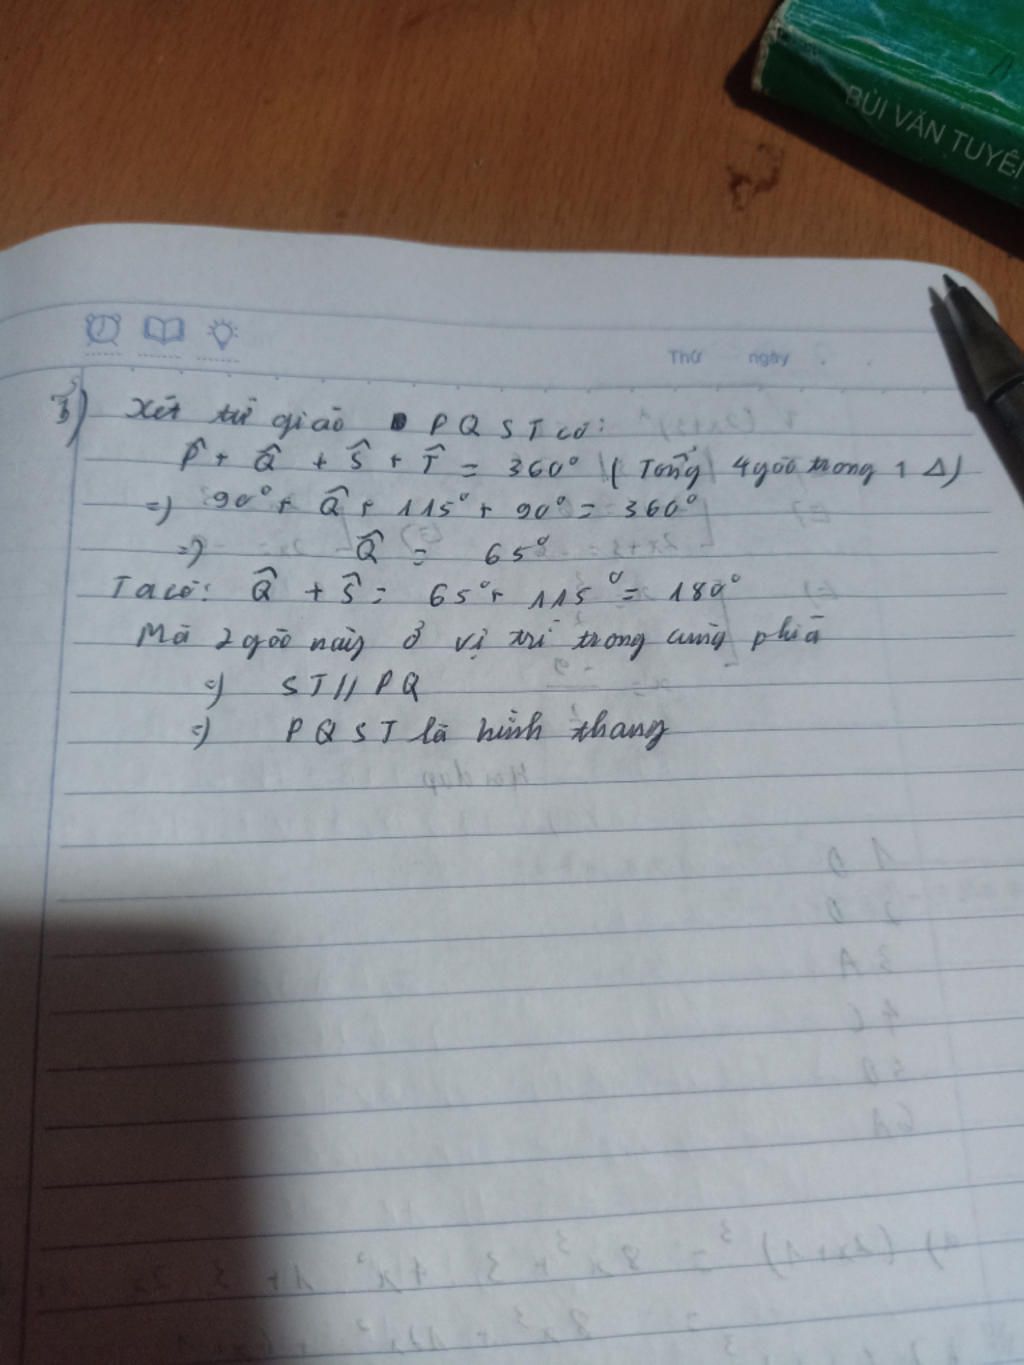 BÙI VĂN TUYÊN
Thứ ngày
3) Xét tứ giác PQST có:
P̂ + Q̂ + Ŝ + T̂ = 360° (Tổng 4 góc trong 1 Δ)
=) 90° + Q̂ + 115° + 90° = 360°
=) Q̂ = 65°
Ta có: Q̂ + Ŝ = 65° + 115° = 180°
Mà 2 góc này ở vị trí trong cùng phía
=) ST // PQ
=) PQST là hình thang